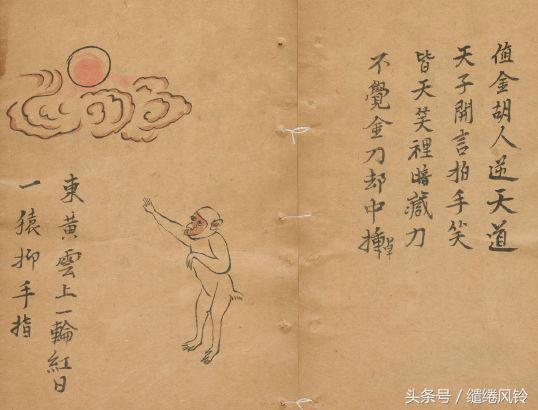 值金胡人逆天道
天子開言拍手笑
皆天笑裡暗藏刀
不覺金刀却中撞
東黃雲上一輪紅日
一猿抑手指
头条号 / 缱绻风铃